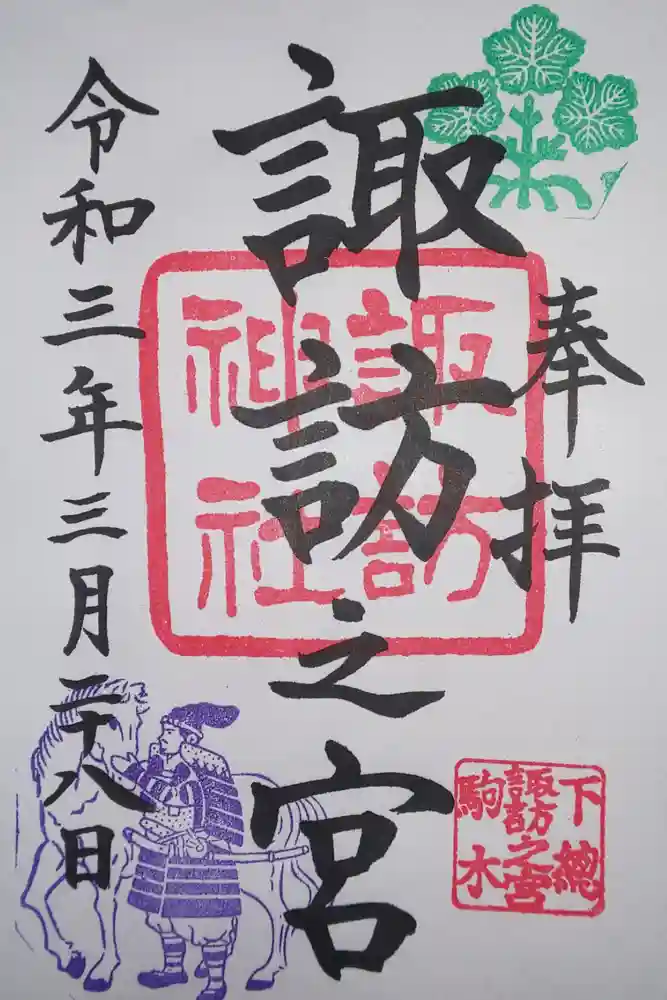 奉拝
諏訪之宮
諏訪
神社
令和三年三月二十八日
下總
諏訪之宮
駒木